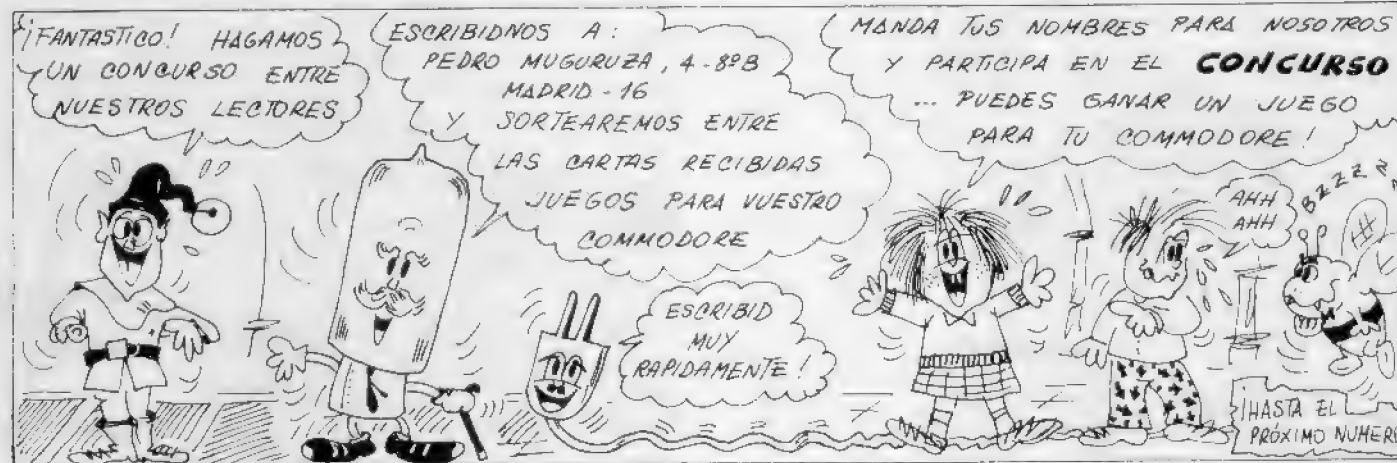 ¡FANTASTICO! HAGAMOS
UN CONCURSO ENTRE
NUESTROS LECTORES
ESCRIBIDNOS A:
PEDRO MUGURUZA, 4-8ºB
MADRID-16
Y SORTEAREMOS ENTRE
LAS CARTAS RECIBIDAS
JUEGOS PARA VUESTRO
COMMODORE
ESCRIBID
MUY
RAPIDAMENTE!
MANDA TUS NOMBRES PARA NOSOTROS
Y PARTICIPA EN EL CONCURSO
... PUEDES GANAR UN JUEGO
PARA TU COMMODORE!
AHH
AHH
BZZZZ
¡HASTA EL
PRÓXIMO NUMER